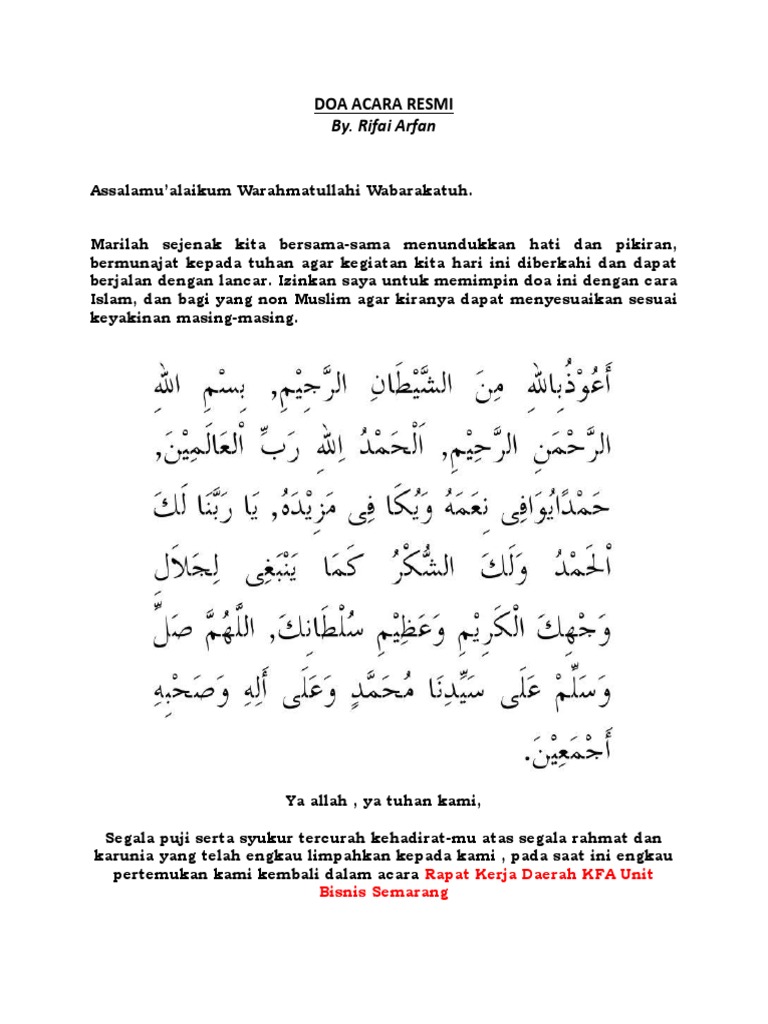 DOA ACARA RESMI
By. Rifai Arfan
Assalamu’alaikum Warahmatullahi Wabarakatuh.
Marilah sejenak kita bersama-sama menundukkan hati dan pikiran,
bermunajat kepada tuhan agar kegiatan kita hari ini diberkahi dan dapat
berjalan dengan lancar. Izinkan saya untuk memimpin doa ini dengan cara
Islam, dan bagi yang non Muslim agar kiranya dapat menyesuaikan sesuai
keyakinan masing-masing.
أَعُوْذُبِاللهِ مِنَ الشَّيْطَانِ الرَّجِيْمِ, بِسْمِ اللهِ
الرَّحْمَنِ الرَّحِيْمِ, اَلْحَمْدُ لِلهِ رَبِّ الْعَالَمِيْنَ,
حَمْدًايُوَافِى نِعَمَهُ وَيُكَا فِى مَزِيْدَهُ, يَا رَبَّنَا لَكَ
الْحَمْدُ وَلَكَ الشُّكْرُ كَمَا يَنْبَغِى لِجَلاَلِ
وَجْهِكَ الْكَرِيْمِ وَعَظِيْمِ سُلْطَانِكَ, اللَّهُمَّ صَلِّ
وَسَلِّمْ عَلَى سَيِّدِنَا مُحَمَّدٍ وَعَلَى أَلِهِ وَصَحْبِهِ
أَجْمَعِيْنَ.
Ya allah , ya tuhan kami,
Segala puji serta syukur tercurah kehadirat-mu atas segala rahmat dan
karunia yang telah engkau limpahkan kepada kami , pada saat ini engkau
pertemukan kami kembali dalam acara Rapat Kerja Daerah KFA Unit
Bisnis Semarang